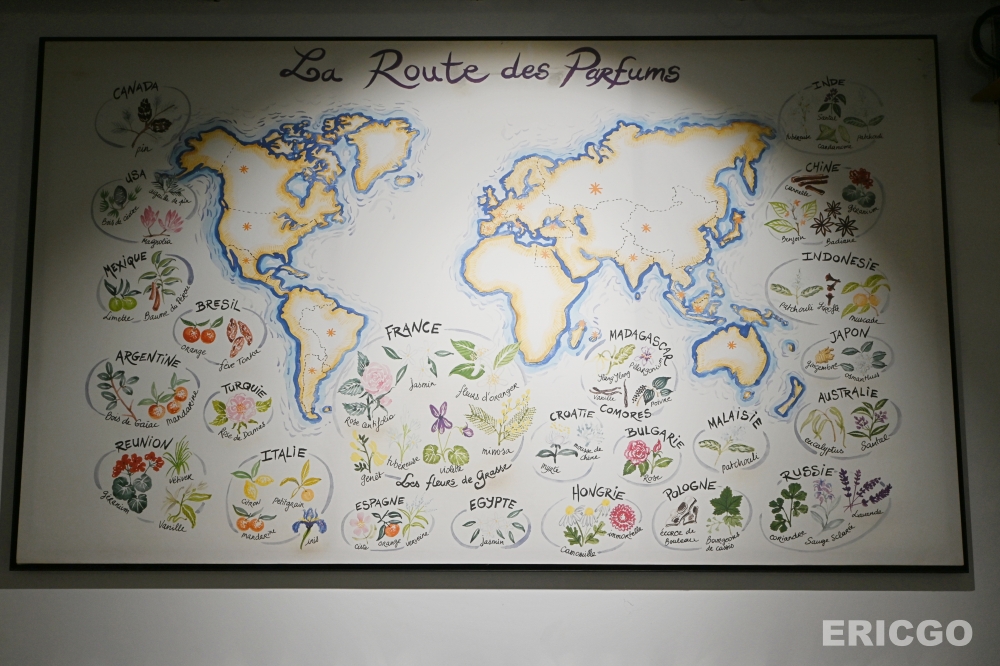 La Route des Parfums
CANADA
pin
USA
Bois de cèdre
Magnolia
MEXIQUE
Limette
Baume du Pérou
BRESIL
orange
fève Tonka
ARGENTINE
Bois de Gaïac
mandarine
TURQUIE
Rose de Damas
REUNION
géranium
Vétiver
Vanille
ITALIE
citron
Petitgrain
mandarine
iris
FRANCE
Jasmin
fleurs d'oranger
Rose centifolia
genêt
tubéreuse
violette
mimosa
Les fleurs de Grasse
ESPAGNE
ciste
orange
verveine
EGYPTE
Jasmin
HONGRIE
Camomille
immortelle
CROATIE
myrte
mousse de chêne
BULGARIE
Rose
MADAGASCAR
Ylang Ylang
Vanille
Poivre
COMORES
MALAISIE
patchouli
POLOGNE
écorce de
Bouleau
Bourgeons
de cassis
RUSSIE
coriandre
Sauge Sclarée
Lavande
INDE
Santal
Cardamome
CHINE
Cannelle
géranium
Benjoin
Badiane
INDONESIE
Patchouli
Girofle
muscade
JAPON
Gingembre
osmanthus
AUSTRALIE
eucalyptus
Santal
ERICGO